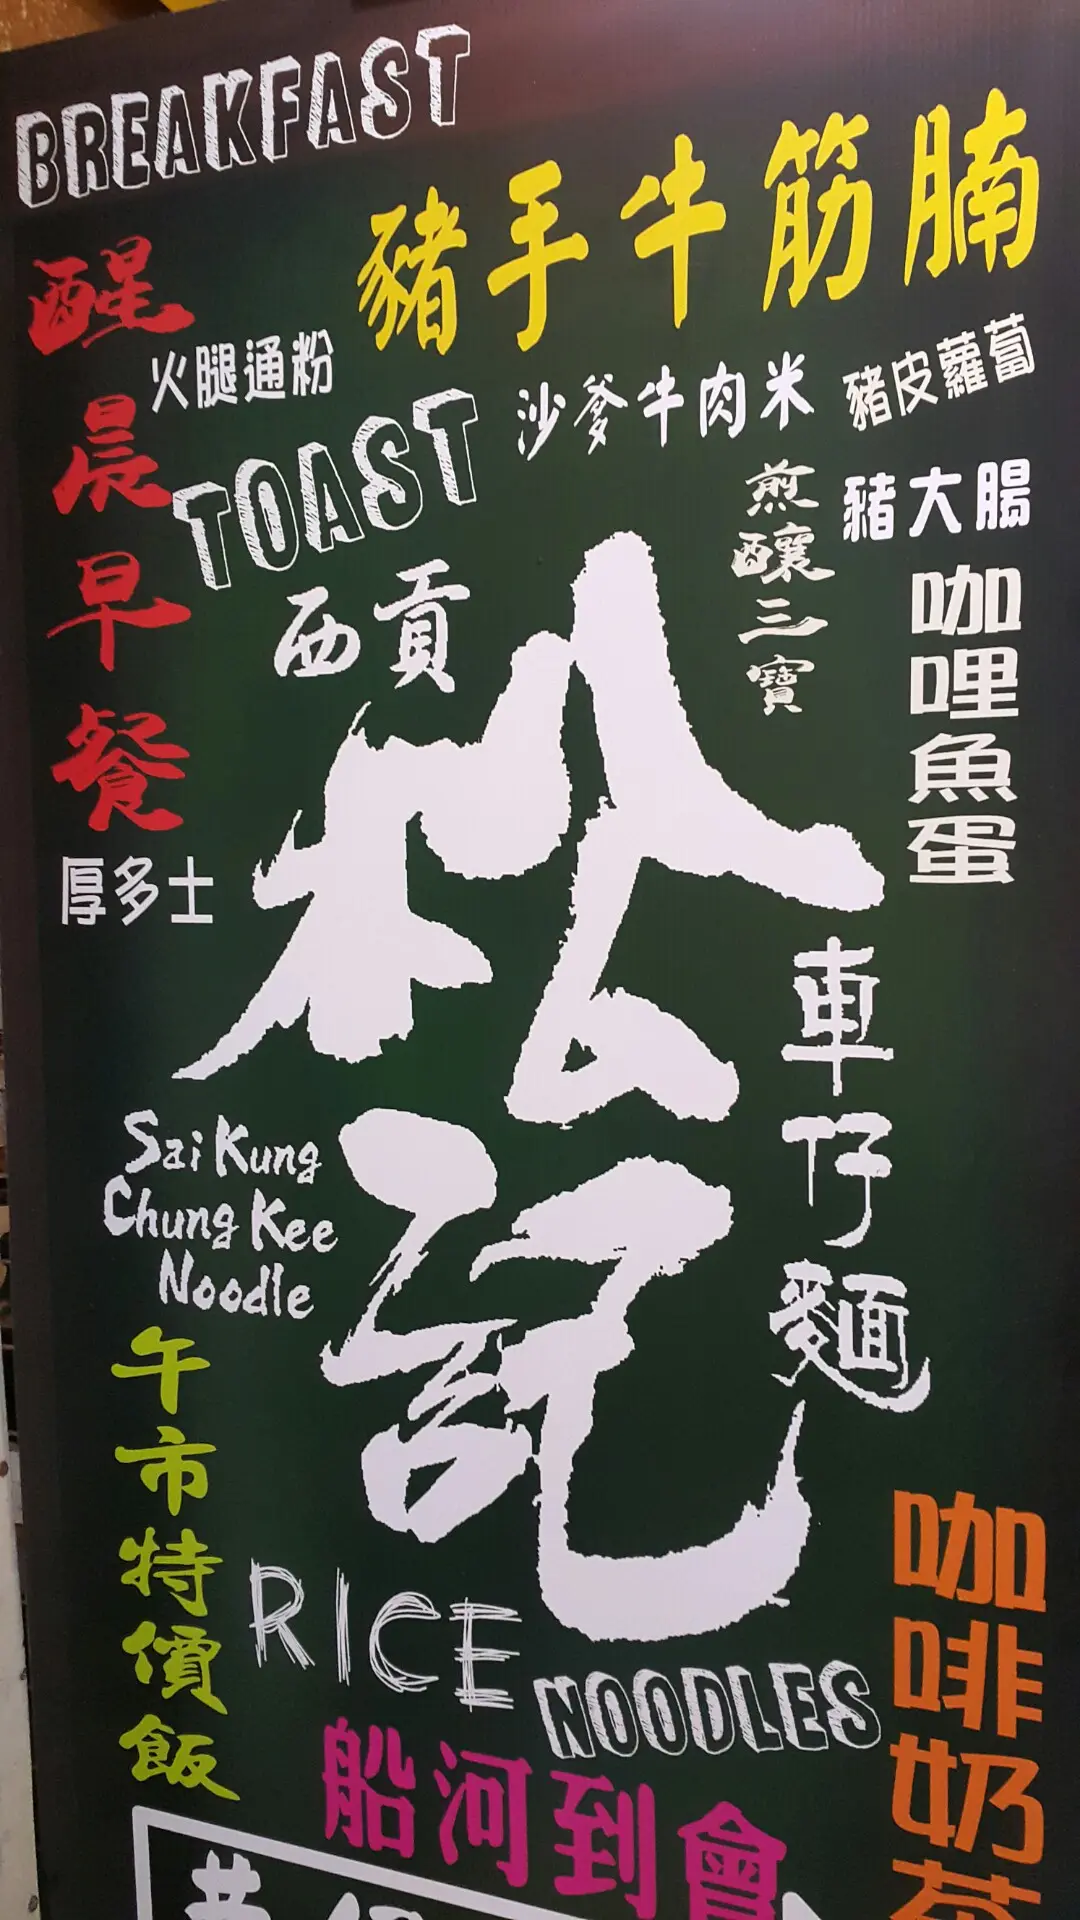 BREAKFAST
豬手牛筋腩
醒晨早餐
火腿通粉
沙爹牛肉米
豬皮蘿蔔
TOAST
豬大腸
煎釀三寶
咖哩魚蛋
西貢
松記
厚多士
車仔麵
Sai Kung
Chung Kee
Noodle
午市特價飯
RICE
NOODLES
咖啡奶茶
船河到會